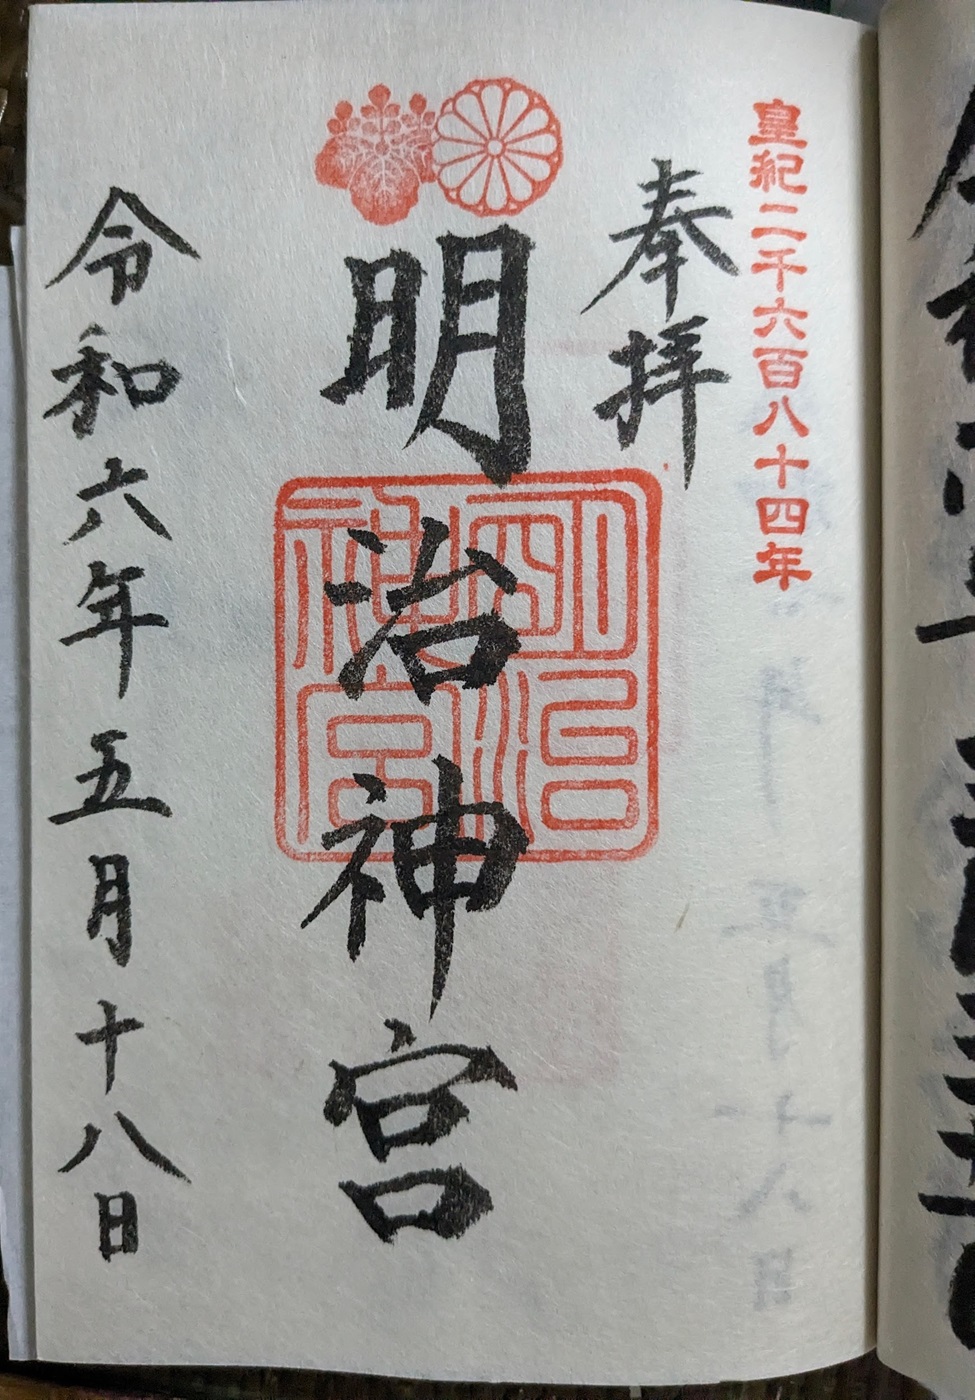 皇紀二千六百八十四年
奉拝
明治神宮
明治神宮
令和六年五月十八日